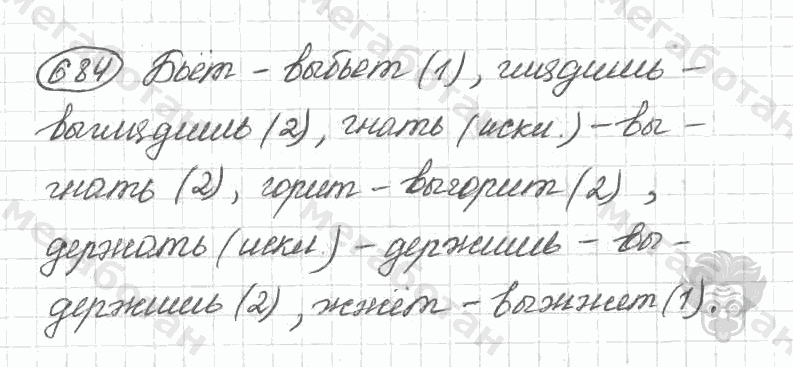 684 Бьёт – выбьет (1), глядишь –
выглядишь (2), гнать (искл.) – вы –
гнать (2), горит – выгорит (2),
держать (искл) – держишь – вы –
держишь (2), жжёт – выжжет (1).
мегаботан